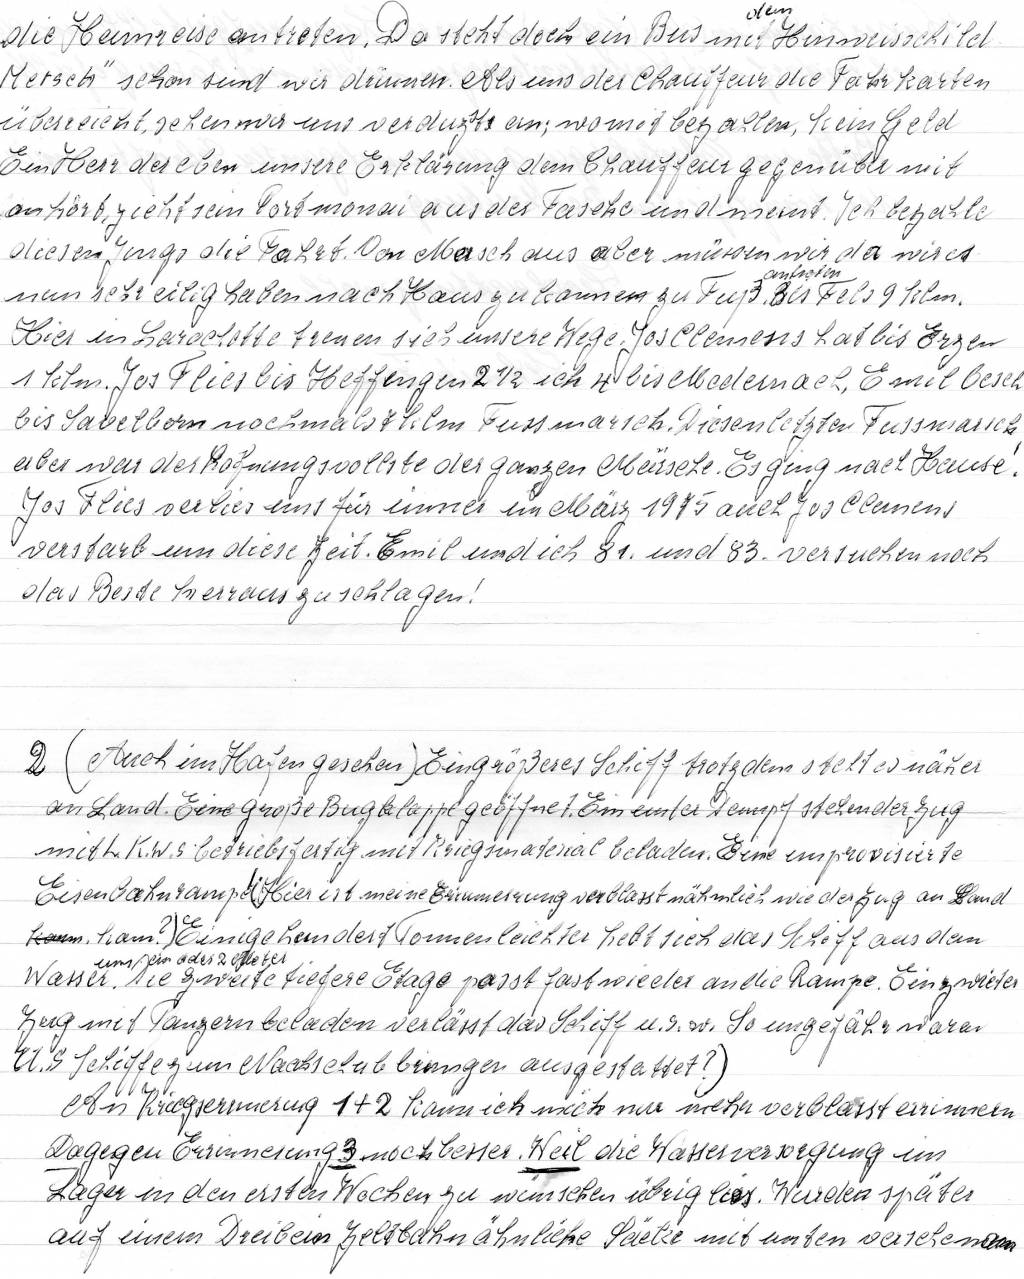 die Heimreise antreten. Da steht doch ein Bus mit dem Hinweisschild
Mersch" schon sind wir drinnen. Als uns der Chauffeur die Fahrkarten
überreicht, sehen wir uns verduzts an; womit bezahlen, kein Geld
Ein Herr der eben unsere Erklärung dem Chauffeur gegenüber mit
anhört, zieht sein Portmonai aus der Tasche und meint. Ich bezahle
diesen Jungs die Fahrt. Von Mersch aus aber müssen wir da wir es
nun sehr eilig haben nach Haus zu kommen zu Fuß antreten. Bis Fels 9 klm.
Hier in Larochette trenen sich unsere Wege. Jos Clemens hat bis Erzen
1 klm. Jos Flies bis Heffingen 2 1/2 ich 4 bis Medernach, Emil besch
bis Savelborn nochmals klm Fussmarsch. Diesen letzten Fussmarsch
aber war der Hofnungsvollste der ganzen Märsche. Es ging nach Hause!
Jos Flies verlies uns für immer im März 1975 auch Jos Clemens
verstarb um diese Zeit. Emil und ich 81. und 83. versuchen noch
das Beste herraus zu schlagen!
2 (Auch im Hafen gesehen) Ein größeres Schiff trotzdem steht es näher
an Land. Eine große Bugklappe geöffnet. Ein unter Dampf stehender Zug
mit L.K.W.s betriebsfertig mit Kriegsmaterial beladen. Eine improvisierte
Eisenbahnrampe (Hier ist meine Erinnerung verblasst nähmlich wie der Zug an Land
kam?) Einige hundert Tonnen leichter hebt sich das Schiff aus dem
Wasser. um ein oder 2 Meter Die zweite tiefere Etage passt fast wieder an die Rampe. Ein zwieter
Zug mit Panzern beladen verlässt das Schiff u.s.w. So ungefähr waren
U.S Schiffe zum Nachschub bringen ausgestattet?)
An Kriegserinerug 1+2 kann ich mich nur mehr verblasst errinnern
Dagegen Errinnerung 3 noch besser. Weil die Wasserversorgung im
Lager in den ersten Wochen zu wünschen übrig lies. Wurden später
auf einem Dreibein Zeltbahn ähnliche Säcke mit unten versehenen